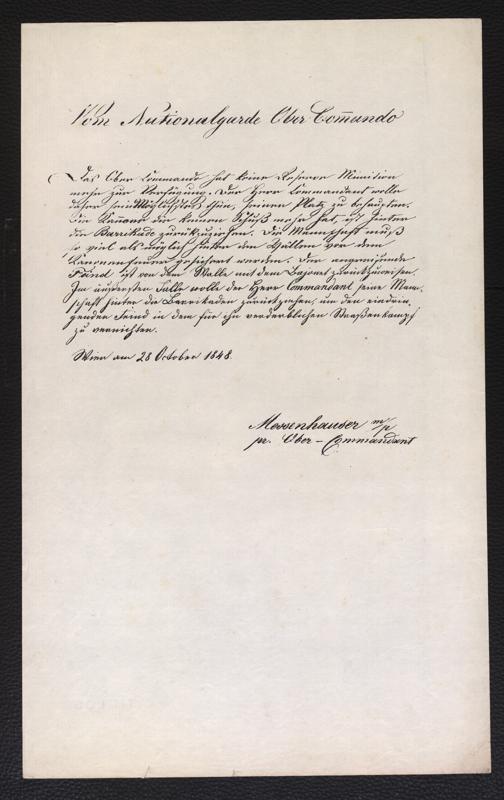 Vom Nationalgarde Ober-Com̄ando
Das Ober Com̄ando hat keine Reserve Munition
mehr zur Verfügung. Der Herr Commandant wolle
daher sein Möglichstes thun, seinen Platz zu behaupten.
Die Kanone die keinen Schuß mehr hat, ist hinter
den Barrikade zurückzuziehen. Die Mannschaft muß
so viel als möglich hinter den Wällen vor dem
Kanonenfeuer gesichert werden. Der angreifende
Feind ist von dem Walle mit dem Bajonet zurückzuweisen.
Im äußersten Falle wolle der Herr Commandant seine Mann
schaft hinter die Barrikaden zurückziehen, um den eindrin,
genden Feind in dem für ihn verderblichen Straßenkampf
zu vernichten.
Wien am 28 October 1848.
Messenhauser m/p
pr. Ober-Commandant